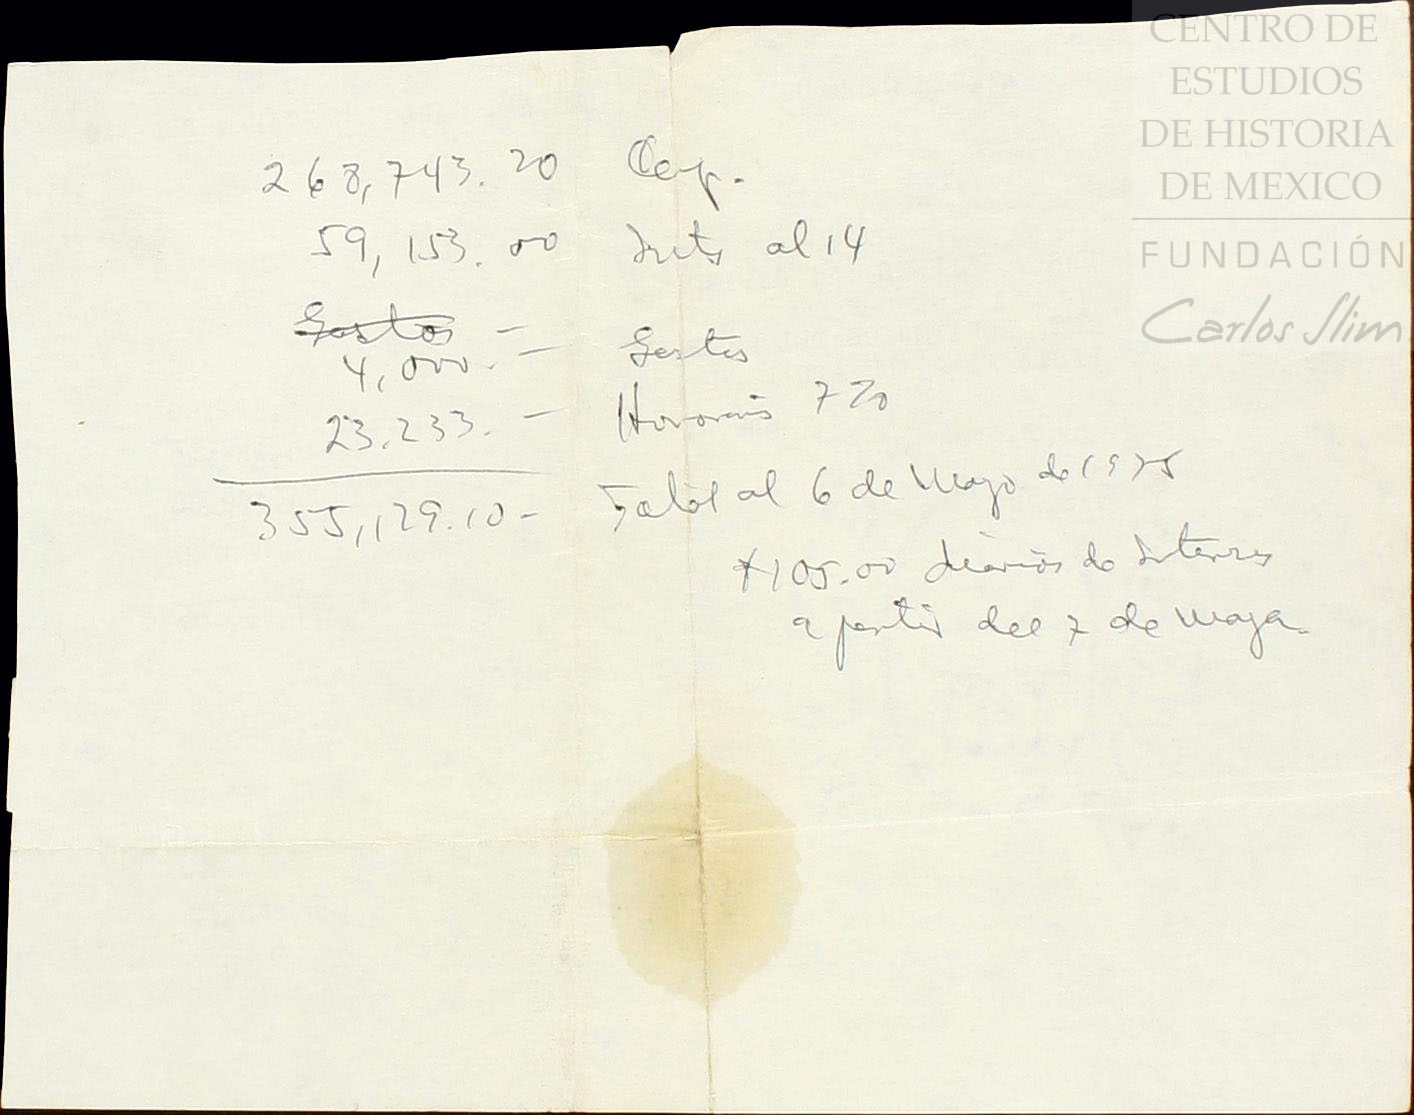 268,743.20 Cap.
59,153.00 Ints al 14
Gastos –
4,000. – Gastos
23.233. – Honorarios 7%
355,129.10 – Total al 6 de Mayo de 1975
+105.00 diarios de Interes
a partir del 7 de Mayo.
CENTRO DE
ESTUDIOS
DE HISTORIA
DE MEXICO
FUNDACIÓN
Carlos Slim